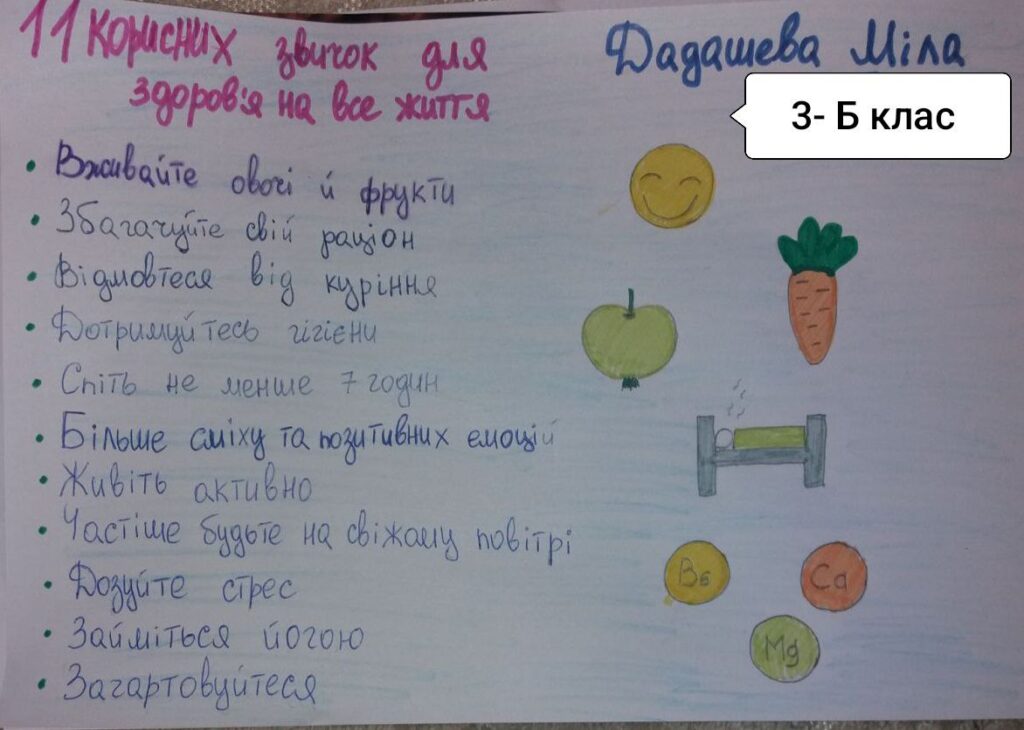 11 Корисних звичок для
здоров'я на все життя
Дадашева Міла
3- Б клас
• Вживайте овочі й фрукти
• Збагачуйте свій раціон
• Відмовтеся від куріння
• Дотримуйтесь гігієни
• Спіть не менше 7 годин
• Більше сміху та позитивних емоцій
• Живіть активно
• Частіше будьте на свіжому повітрі
• Дозуйте стрес
• Займіться йогою
• Загартовуйтеся
B6
Ca
Mg